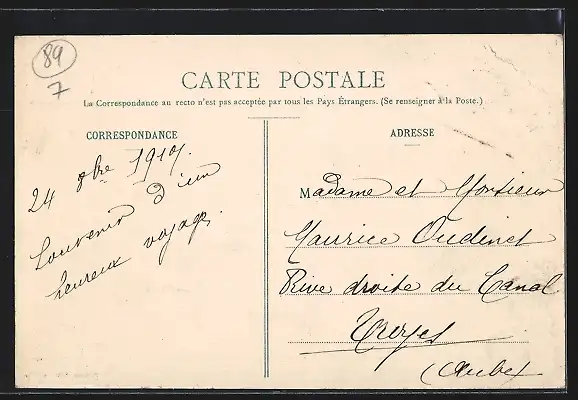 89
7
CARTE POSTALE
La Correspondance au recto n'est pas acceptée par tous les Pays Étrangers. (Se renseigner à la Poste.)
CORRESPONDANCE
24 8bre
Souvenir d'un
heureux voyage.
ADRESSE
Madame et Monsieur
Maurice Oudinet
Rive droite du Canal
Troyes
(Aube)